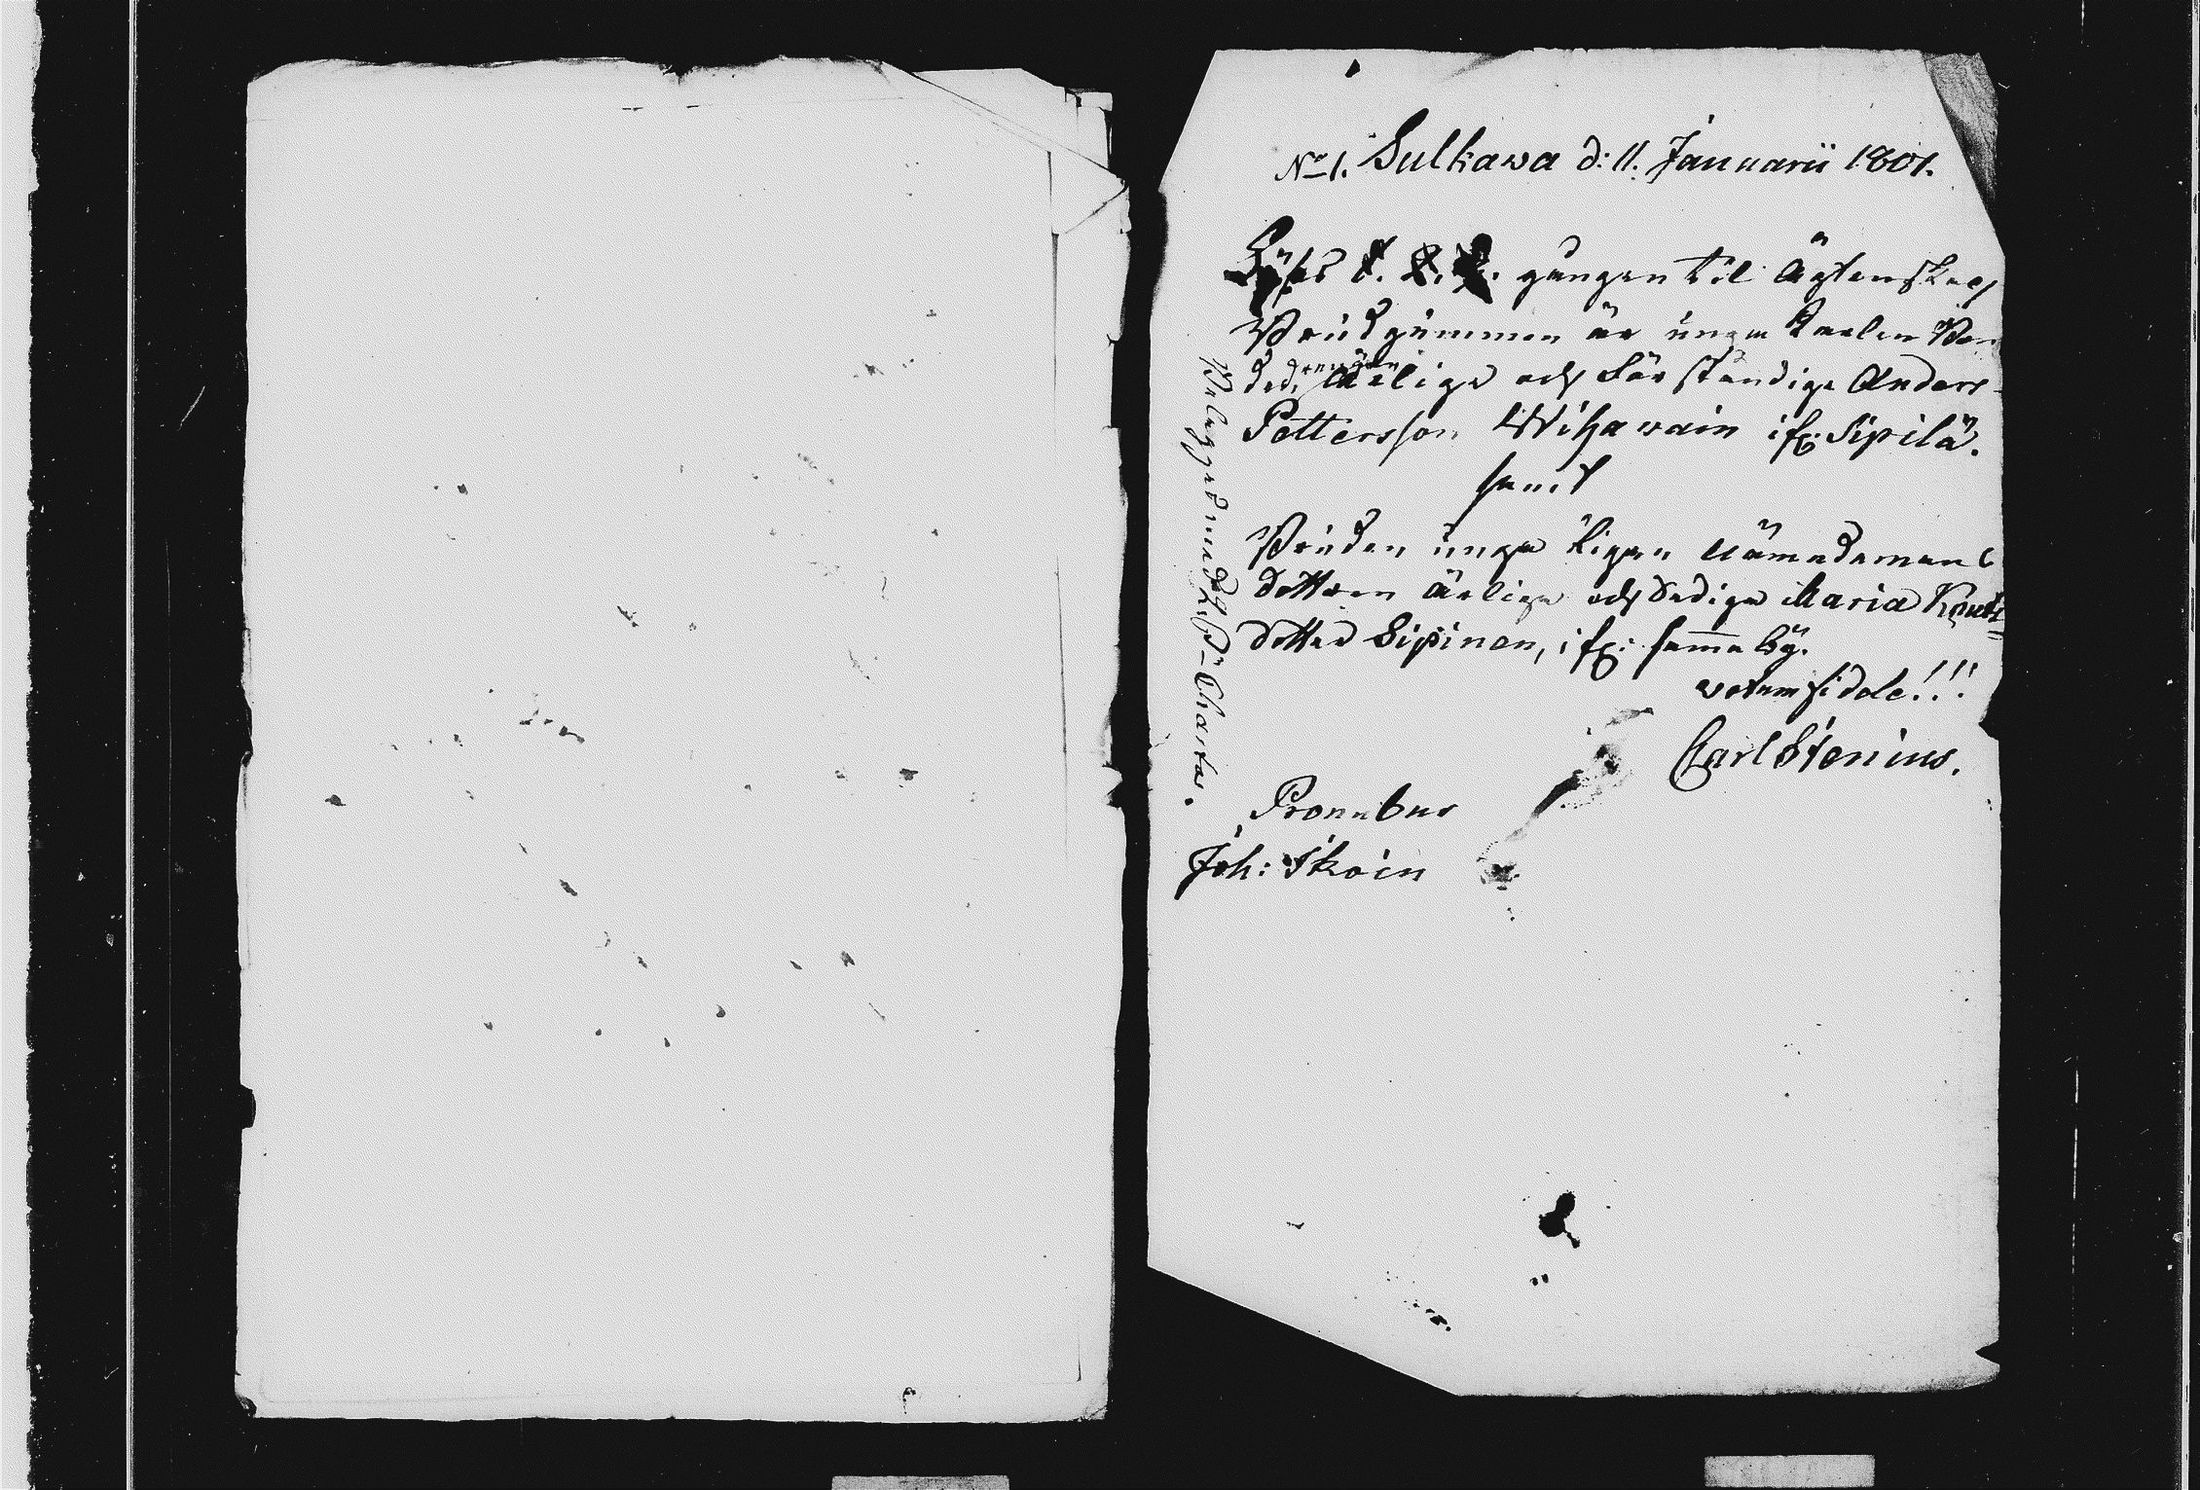 No 1. Sulkawa d: 11. Januarii 1801.
Lyses 1. 2. 3. gången til Ägtenskap
Brudgummen är unga Karlen Bon
de drengen Ärlige och Förståndige Anders
Pettersson Wihawain ifr: Sipilä.
samt
Bruden unga Pigan Nämndemans
dottren ärliga och Sediga Maria Knuts
dotter Sipinen, ifr: samma by.
votum fidele!!!
Carl Stenius.
Pronubus
Joh: Ikoin
Belagges med Charta.